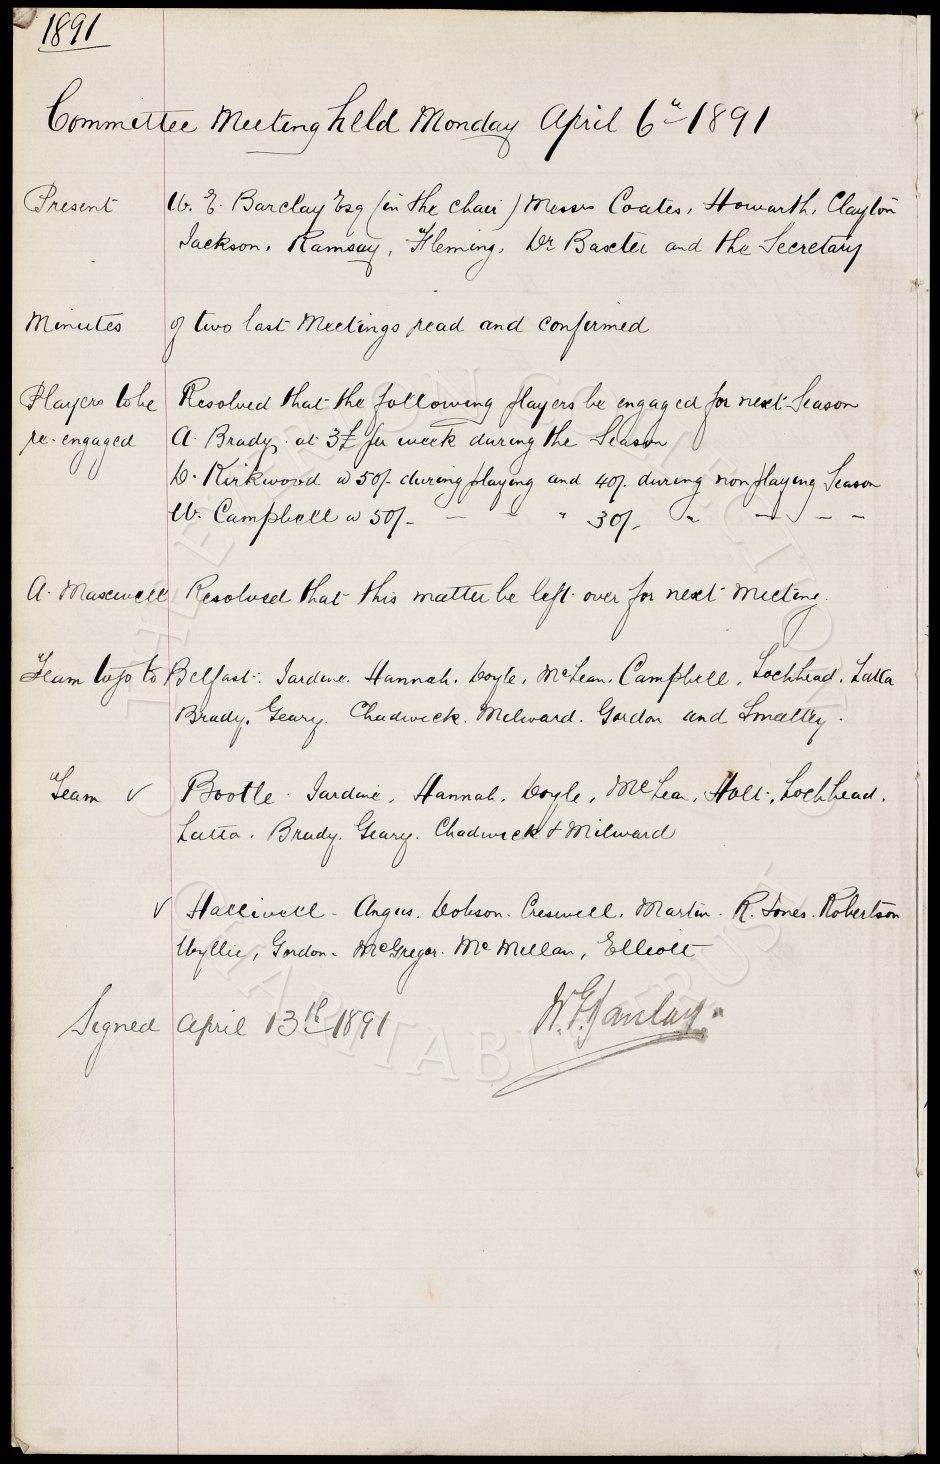 1891
Committee Meeting held Monday April 6th 1891
Present W. E. Barclay Esq (in the chair) Messrs Coates, Howarth, Clayton
Jackson, Ramsay, Fleming, Dr Baxter and the Secretary
Minutes of two last Meetings read and confirmed
Players to be Resolved that the following players be engaged for next Season
re-engaged A. Brady. at 3£ per week during the Season
D. Kirkwood @ 50/- during playing and 40/- during non playing Season
W. Campbell @ 50/- — — " 30/- " — — —
A. Maxwell Resolved that this matter be left over for next Meeting.
Team to go to Belfast. Jardine. Hannah. Doyle, McLean. Campbell, Lochhead. Latta
Brady. Geary. Chadwick. Milward. Gordon and Smalley.
Team v Bootle. Jardine, Hannah. Doyle, McLean, Holt, Lochhead.
Latta. Brady. Geary. Chadwick & Milward
v Halliwell - Angus. Dobson. Creswell. Martin. R. Jones. Robertson
Wyllie, Gordon. McGregor. McMillan, Elliott
Signed April 13th 1891 W.E. Barclay.
THE EVERTON COLLECTION
CHARITABLE TRUST